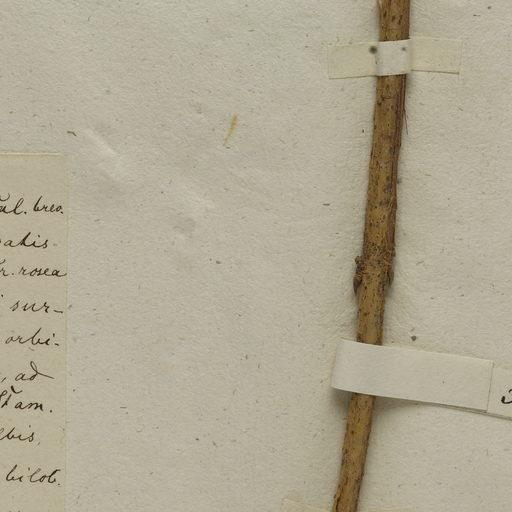 al. brev.
atis
r. rosea
sur-
orbi-
, ad
Stam.
bis,
bilob.
3